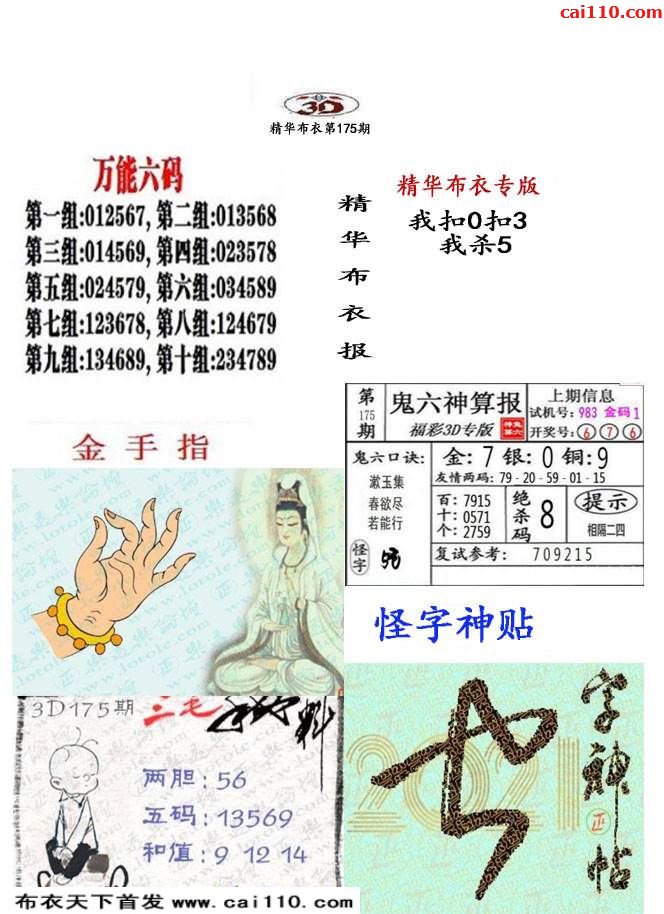 cai110.com
3D
精华布衣第175期
万能六码
第一组:012567,第二组:013568
第三组:014569,第四组:023578
第五组:024579,第六组:034589
第七组:123678,第八组:124679
第九组:134689,第十组:234789
精华布衣报
精华布衣专版
我扣0扣3
我杀5
金手指
第175期
鬼六神算报
福彩3D专版
上期信息
试机号: 983 金码1
开奖号: 6 7 6
鬼六口诀:
漱玉集
春欲尽
若能行
怪字
金: 7 银: 0 铜: 9
友情两码: 79-20-59-01-15
百: 7915
十: 0571
个: 2759
绝杀码
8
提示
相隔二四
复试参考: 709215
怪字神贴
3D175期
三毛
两胆: 56
五码: 13569
和值: 9 12 14
2021
字神帖
布衣天下首发 www.cai110.com